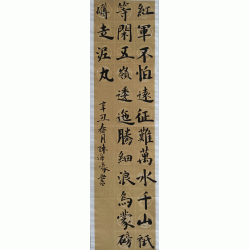 紅軍不怕遠征難萬水千山祇
等閑五嶺逶迤騰細浪烏蒙磅
礴走泥丸
辛丑春月
書